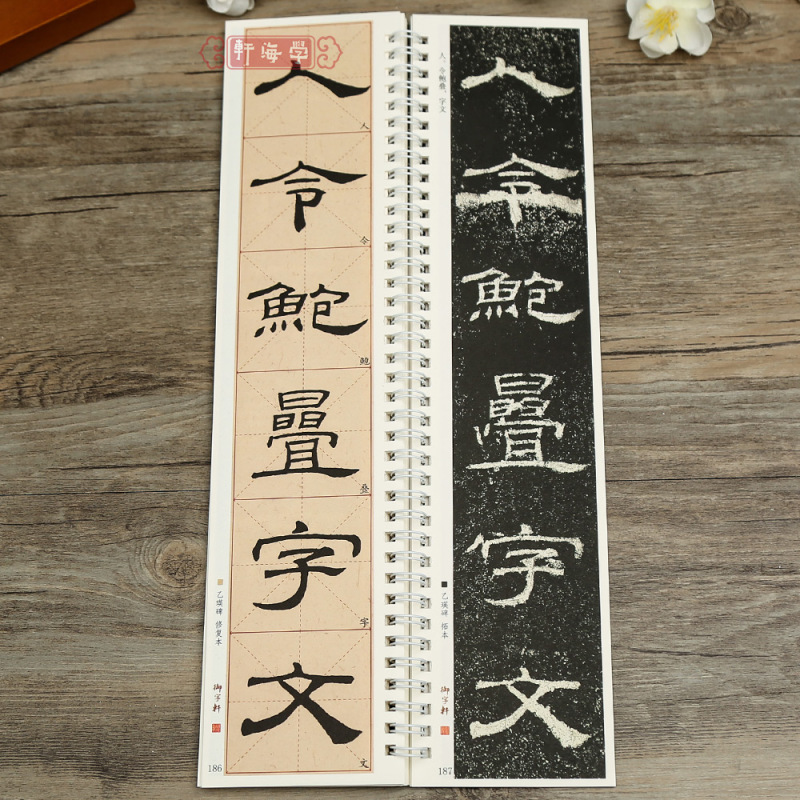 軒海学
人
人
令
令
鮑
鲍
疊
叠
字
字
文
文
乙瑛碑 修复本
御字軒
186
人
令
鮑
疊
字
文
人、令鲍叠、字文
乙瑛碑 拓本
御字軒
187